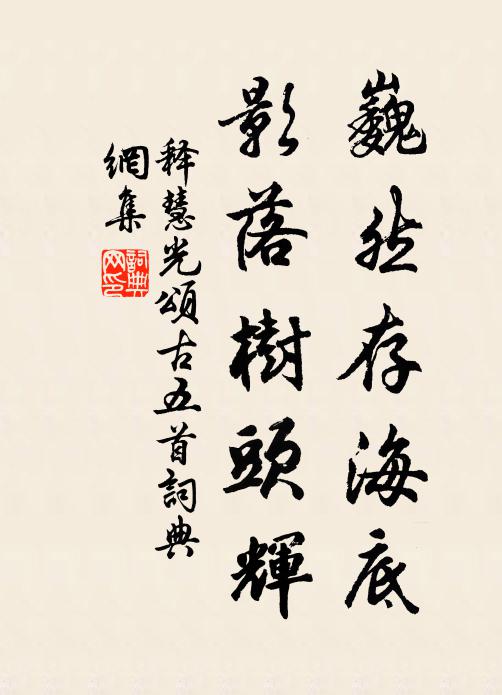 巍然存海底
影落樹頭輝
释慧光頌古五首詞典
網集
詞典
网印